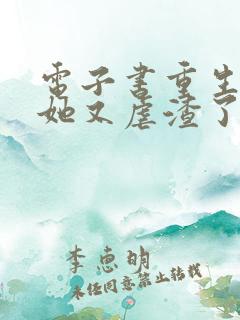 電子書重生
她又虐渣了
李惠明
未经同意禁止转载